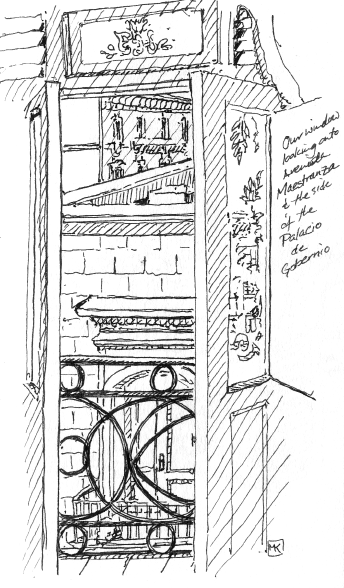 Our window
looking onto
avenida
Maestranza
& the side
of the
Palacio
de
Gobernio
MK